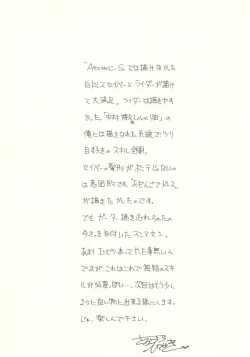 "Atomic.S"では描けなかった
白ドレスセイバーとライダーが描け
て大満足。ライダーは描きやす
かった「中村博文 Love 畑」の
俺には描きなれた系統でツリ
目好きのスキル全開。
セイバーの髪形がポニテじゃないの
は意図的です。おぜんざでドレス
が描きたかったのです。
でも ガーター 描き忘れちゃったの
今さら気付いたスンマセン。
あまり エンピツ本ってやった事無いん
ですが、これはこれで独特のスキ
ルが必要っぽい…。次回はもう少し
まった良い物に出来る様にします。
じゃ、楽しんで下さい。